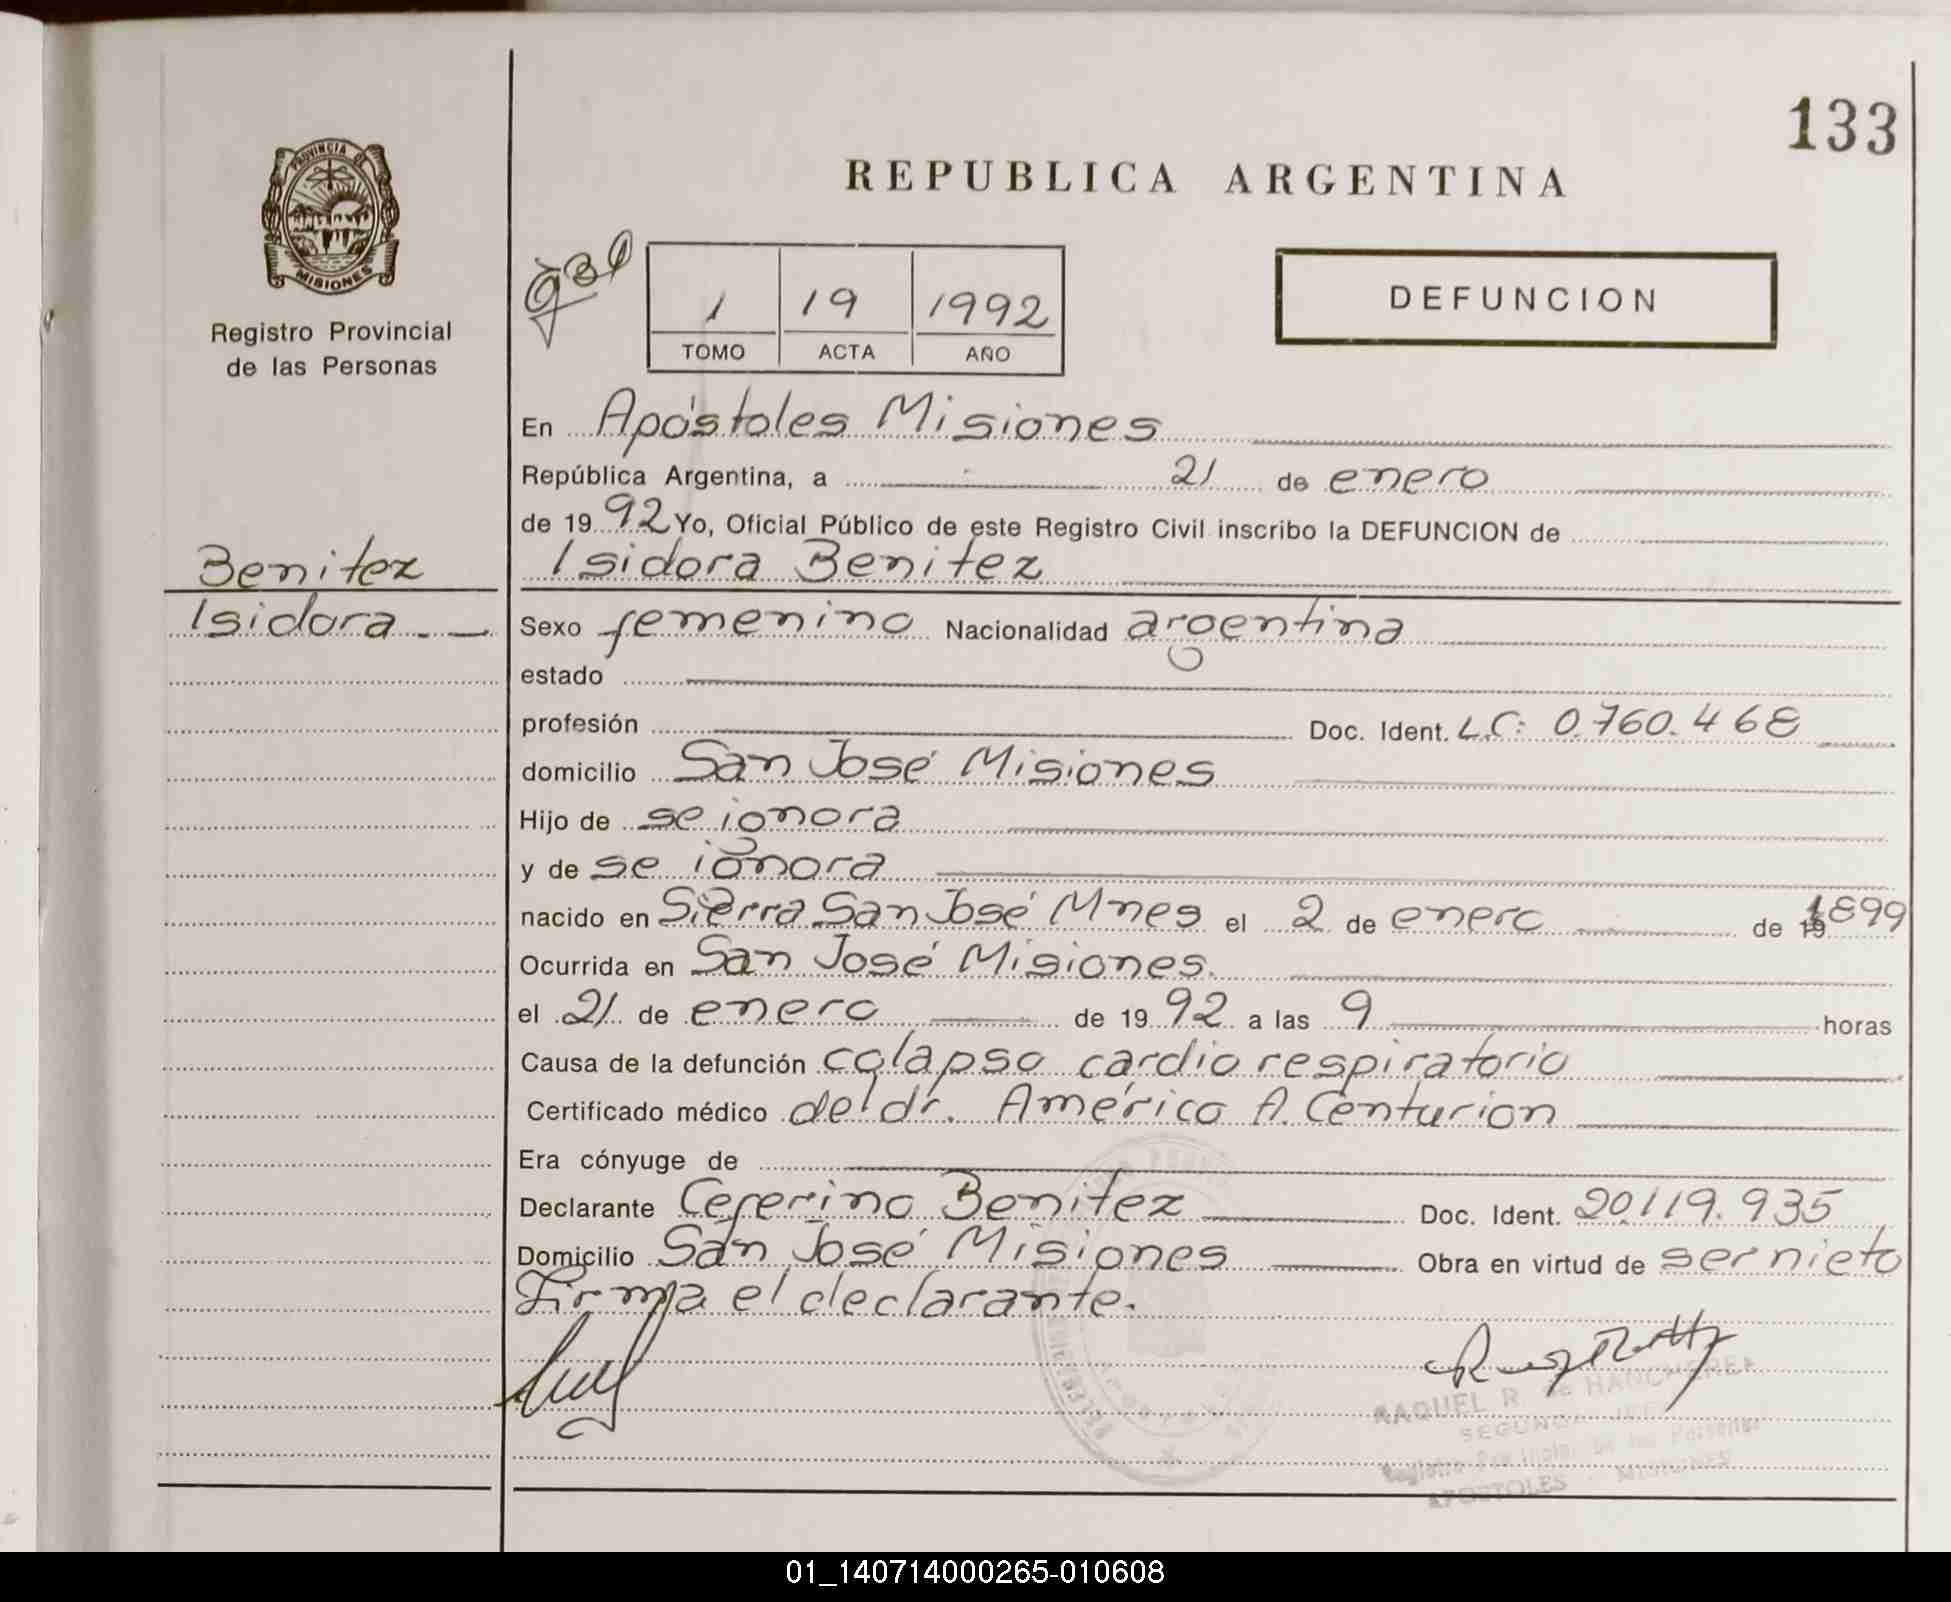 133
REPUBLICA ARGENTINA
PROVINCIA DE
MISIONES
Registro Provincial
de las Personas
1 19 1992
TOMO ACTA AÑO
DEFUNCION
En Apóstoles Misiones
República Argentina, a 21 de enero
de 1992 Yo, Oficial Público de este Registro Civil inscribo la DEFUNCION de
Benitez
Isidora
Isidora Benitez
Sexo femenino Nacionalidad argentina
estado
profesión Doc. Ident. L.C: 0.760.468
domicilio San José Misiones
Hijo de se ignora
y de se ignora
nacido en Sierra San José Mnes el 2 de enero de 1899
Ocurrida en San José Misiones.
el 21 de enero de 1992 a las 9 horas
Causa de la defunción colapso cardio respiratorio
Certificado médico del dr. Américo A. Centurion
Era cónyuge de
Declarante Ceferino Benitez Doc. Ident. 20.119.935
Domicilio San José Misiones Obra en virtud de ser nieto
Firma el declarante.
RAQUEL R. de
SEGUNDO JEFE
Registro Provincial de las Personas
APOSTOLES - MISIONES
01_140714000265-010608